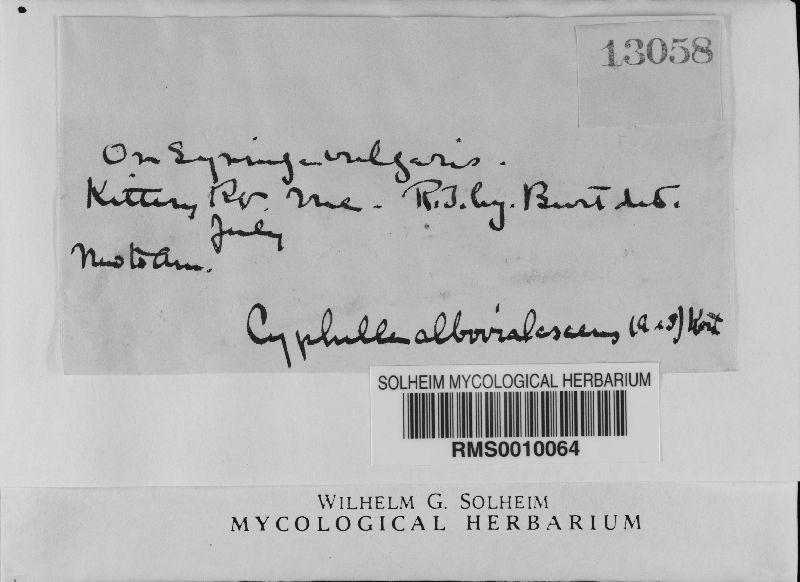 13058
On Syringa vulgaris.
Kittery Me. Burt det.
July
New to Am.
Cyphella alboviolascens (A & S) Karst
SOLHEIM MYCOLOGICAL HERBARIUM
RMS0010064
WILHELM G. SOLHEIM
MYCOLOGICAL HERBARIUM